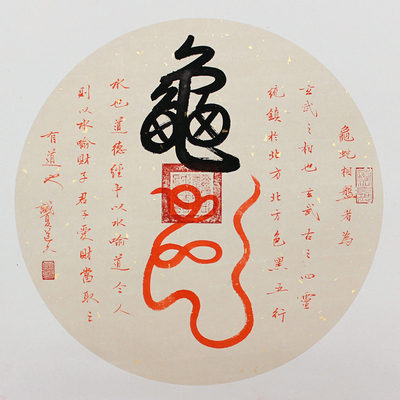 龜蛇相盤者為
玄武之相也玄武古之四靈
統鎮於北方北方色黑五行
龜
水也道德經中以水喻道今人
則以水喻財君子愛財當取之
有道也